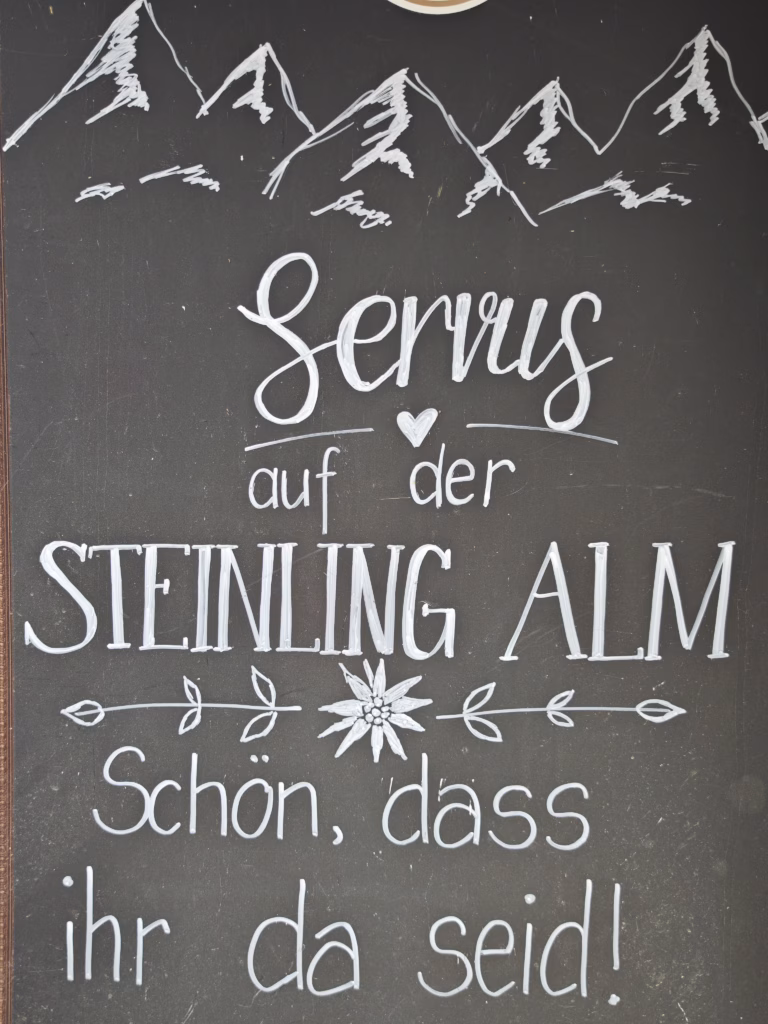 Servus
auf der
STEINLING ALM
Schön, dass
ihr da seid!